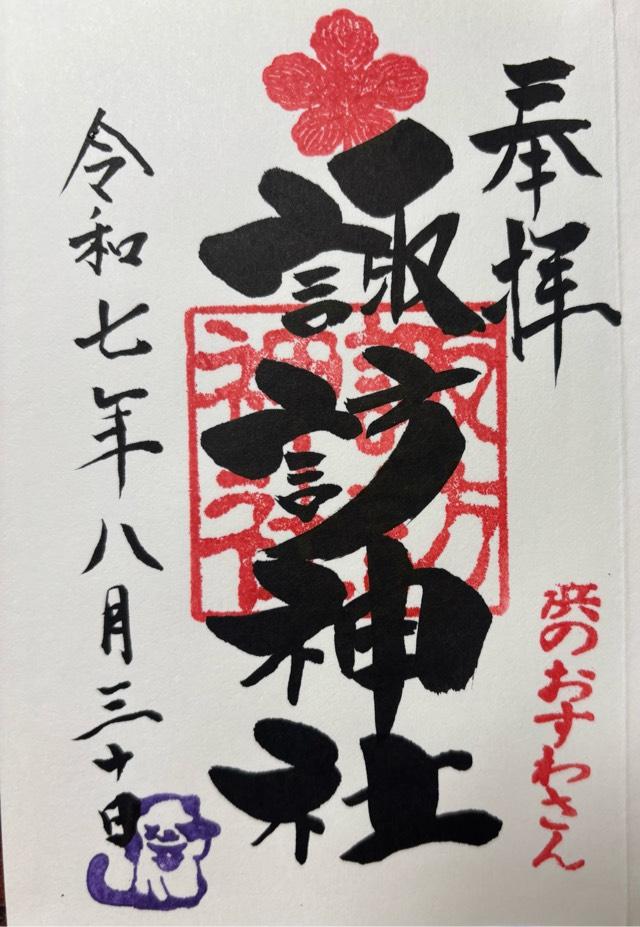 奉拝
浜のおすわさん
諏訪神社
諏訪神社
令和七年八月三十日